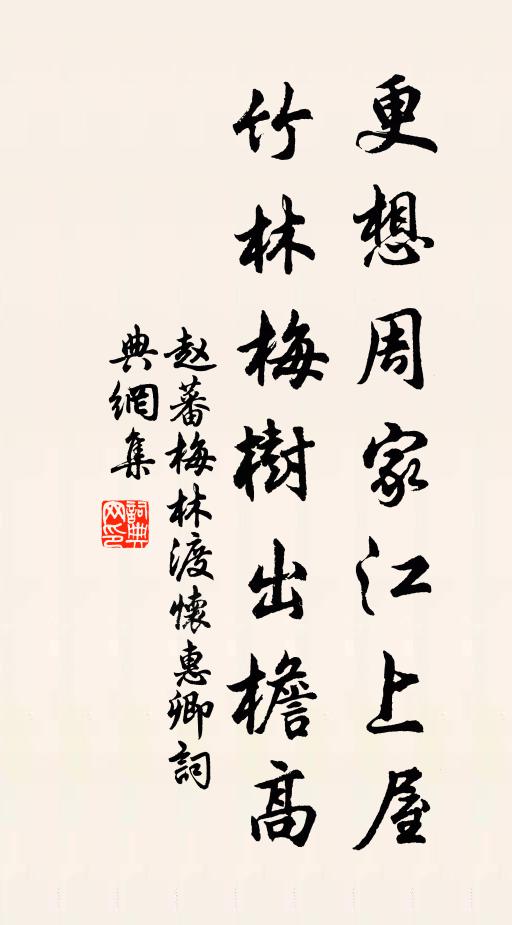 更想周家江上屋
竹林梅樹出檐高
赵蕃梅林渡懷惠卿詞
典網集
詞典
网印